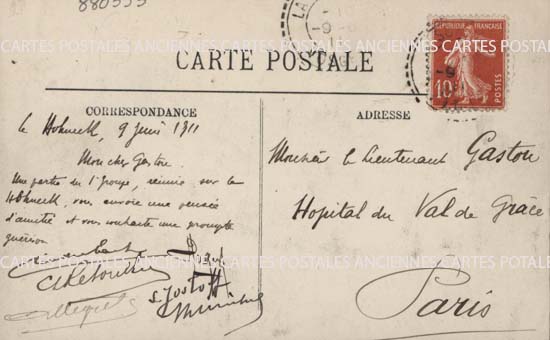 880555
CARTES POSTALES ANCIENNES CARTES POSTALES ANCIENNES CARTES POSTALES
CARTE POSTALE
LA
REPUBLIQUE FRANÇAISE
10
POSTES
CORRESPONDANCE
ADRESSE
le Hohneck, 9 Juin 1911
Mon cher Gaston.
Une partie du 1er Groupe, réunis sur le
Hohneck, vous envoie une pensée
d'amitié et vous souhaite une prompte
guérison
Monsieur le Lieutenant Gaston
Hopital du Val de Grâce
Paris
CARTES POSTALES ANCIENNES CARTES POSTALES ANCIENNES CARTES POSTALES